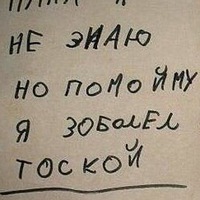 НЕ ЗНАЮ
НО ПОМОЙМУ
Я ЗОБОЛЕЛ
ТОСКОЙ